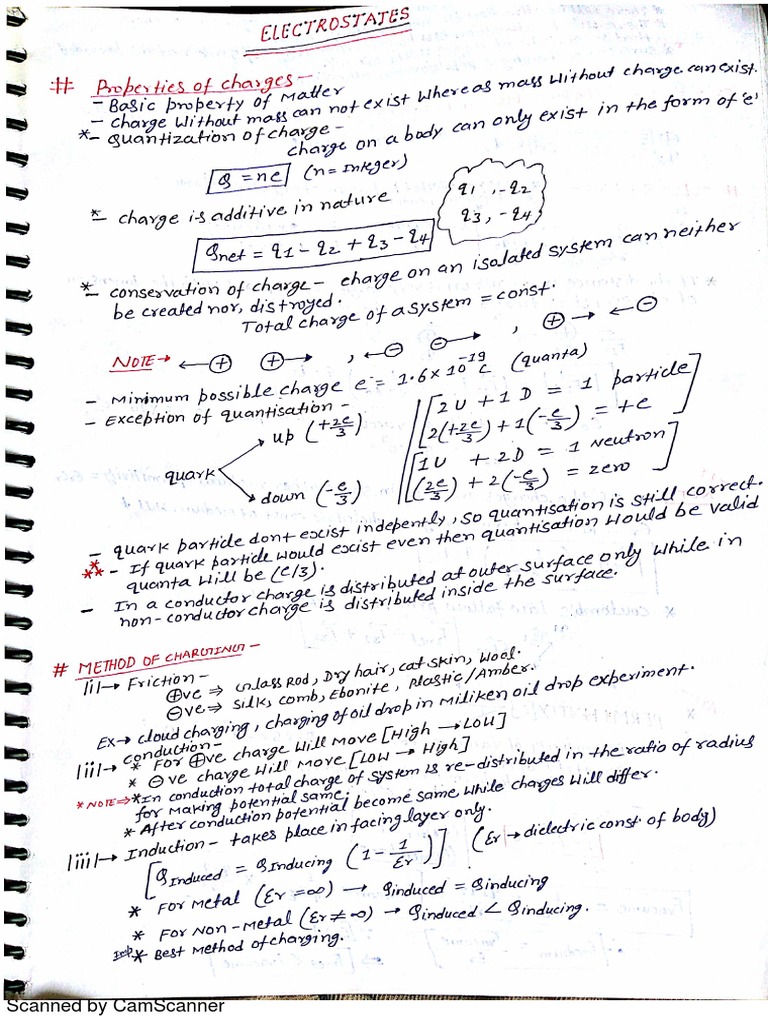 ELECTROSTATES
# Properties of charges –
– Basic property of Matter
– Charge Without mass can not exist Where as mass Without charge can exist.
*– Quantization of charge –
charge on a body can only exist in the form of 'e'
Q = ne (n = Integer)
q1, -q2
q3, -q4
*– charge is additive in nature
Qnet = q1 - q2 + q3 - q4
*– conservation of charge – charge on an isolated system can neither
be created nor, distroyed.
Total charge of a system = const.
NOTE → ←⊕ ⊕→ , ←⊖ ⊖→ , ⊕→ ←⊖
– Minimum possible charge e⁻ = 1.6 × 10⁻¹⁹ C (quanta)
– Exception of quantisation –
quark
up (+2e/3)
down (-e/3)
[2U + 1D = 1 particle
2(+2e/3) + 1(-e/3) = +e]
[1U + 2D = 1 Neutron
(2e/3) + 2(-e/3) = zero]
– quark particle dont excist indepently, so quantisation is still correct.
*** – If quark particle would excist even then quantisation would be valid
quanta Will be (e/3).
– In a conductor charge is distributed at outer surface only While in
non-conductor charge is distributed inside the surface.
# METHOD OF CHARGING –
|i| → Friction –
⊕ve ⇒ Glass Rod, Dry hair, cat skin, Wool.
⊖ve ⇒ Silk, comb, Ebonite, Plastic/Amber.
Ex → cloud charging, charging of oil drop in Miliken oil drop experiment.
|ii| → conduction –
* For ⊕ve charge Will move [High → LOW]
* ⊖ve charge Will Move [LOW → High]
* NOTE ⇒ * In conduction total charge of system is re-distributed in the ratio of radius
for Making potential same.
* After conduction potential become same while charges Will differ.
|iii| → Induction – takes place in facing layer only.
[QInduced = QInducing (1 - 1/Ɛr)] (Ɛr → dielectric const of body)
* For Metal (Ɛr = ∞) → Qinduced = Qinducing
* For Non-Metal (Ɛr ≠ ∞) → Qinduced < Qinducing.
Imp * Best Method of charging.
Scanned by CamScanner